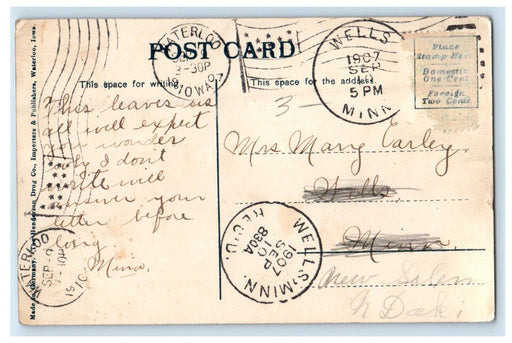 POST CARD
This space for writing.
This space for the address.
WATERLOO
3-30P
IOWA
WELLS
1907
SEP
5 PM
MINN
Place
Stamp Here
Domestic
One Cent
Foreign
Two Cents
3-
This leaves us
all will expect
you wonder
why I don't
write will
answer your
letter before
long
Mina.
Mrs Mary Earley,
Wells,
Minn
New Salem
N Dak.
WELLS, MINN.
1907
SEP
10
830A
REC'D.
WATERLOO
SEP 9
-30P
Made in Germany. Henderson Drug Co., Importers & Publishers, Waterloo, Iowa.